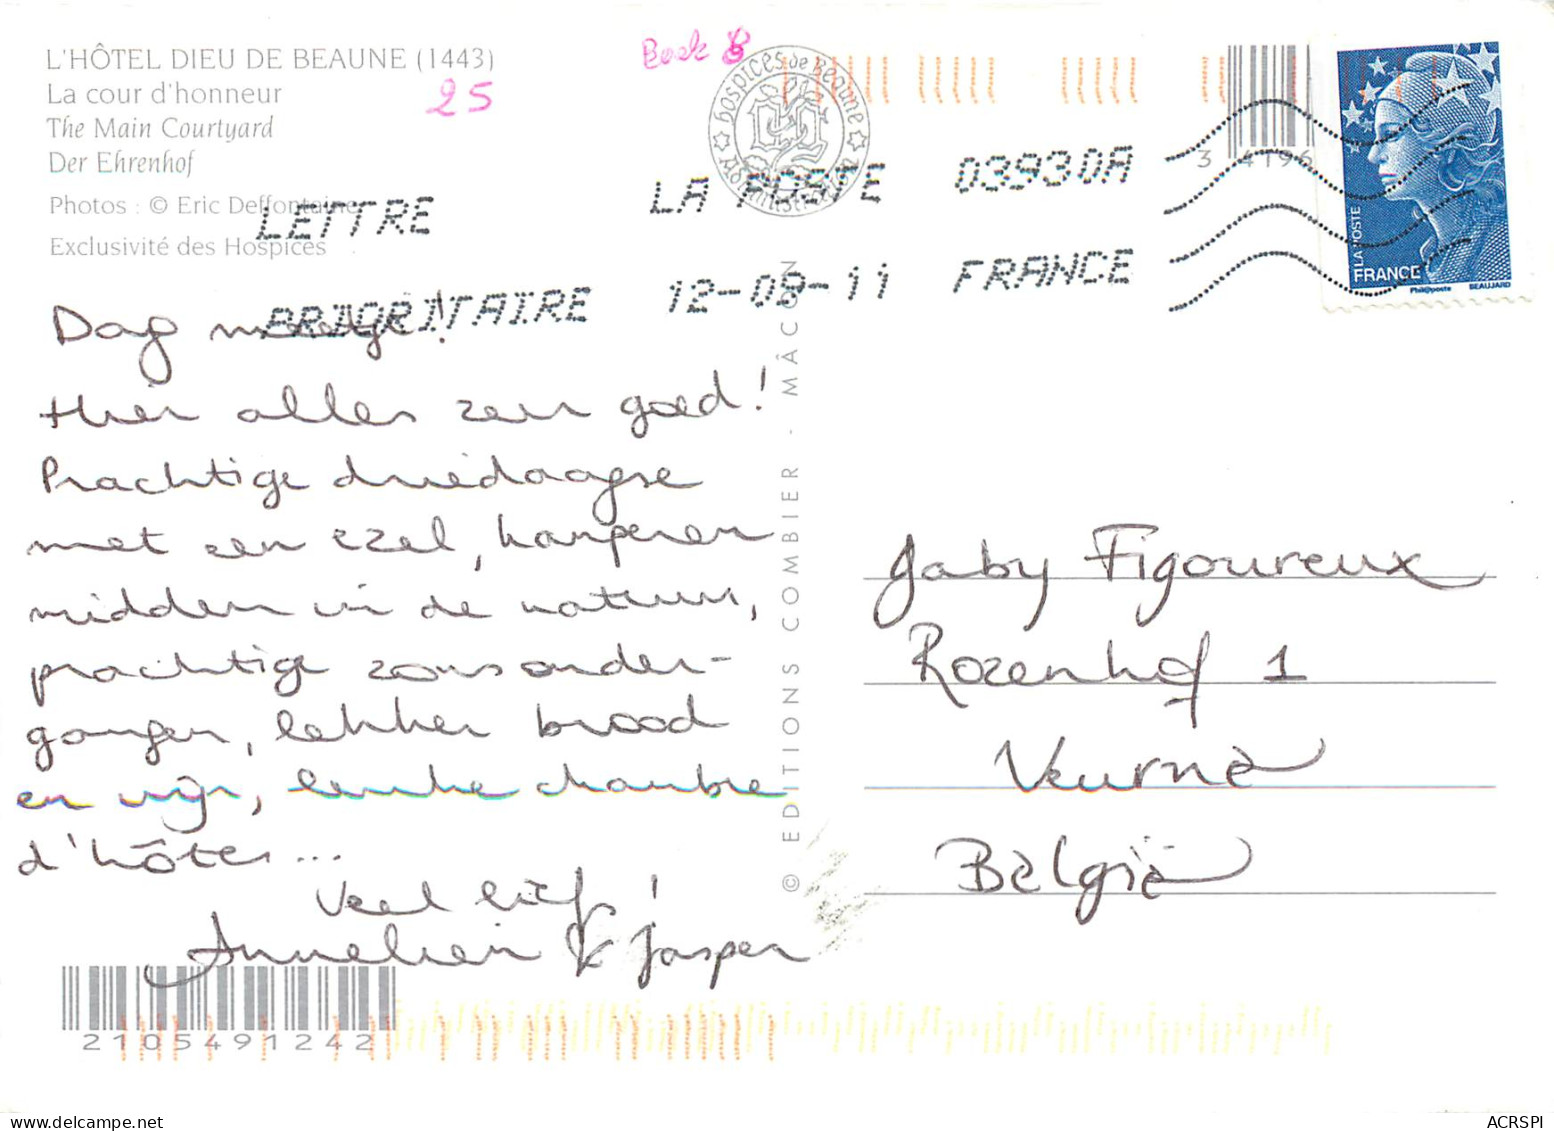 L'HÔTEL DIEU DE BEAUNE (1443)
La cour d'honneur
The Main Courtyard
Der Ehrenhof
Photos : © Eric Deffontaine
Exclusivité des Hospices
25
Book B
Hospices de Beaune
Administration
LETTRE
PRIORITAIRE
LA POSTE
12-09-11
03930A
FRANCE
3 4196
LA POSTE
FRANCE
Phil@poste
BEAUJARD
Dag meetje!
Hier alles zeer goed!
Prachtige driedaagse
met een ezel, kamperen
midden in de natuur,
prachtige zonsonder-
gangen, lekker brood
en wijn, leuke chambre
d'hôtes...
Veel liefs!
Annelien & Jasper
© EDITIONS COMBIER - MÂCON
Gaby Figoureux
Rozenhof 1
Veurne
België
2105491242
ACRSPI